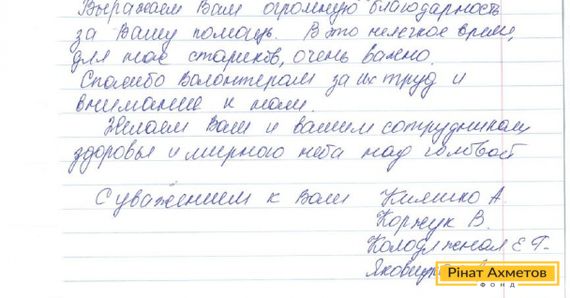 Выражаем Вам огромную благодарность
за Вашу помощь. В это нелегкое время,
для нас стариков, очень важно.
Спасибо волонтерам за их труд и
внимание к нам.
Желаем Вам и вашим сотрудникам
здоровья и мирного неба над головой
С уважением к Вам Кияшко А.
Коржук В.
Колодяжная Е Г.
Рінат Ахметов
ФОНД